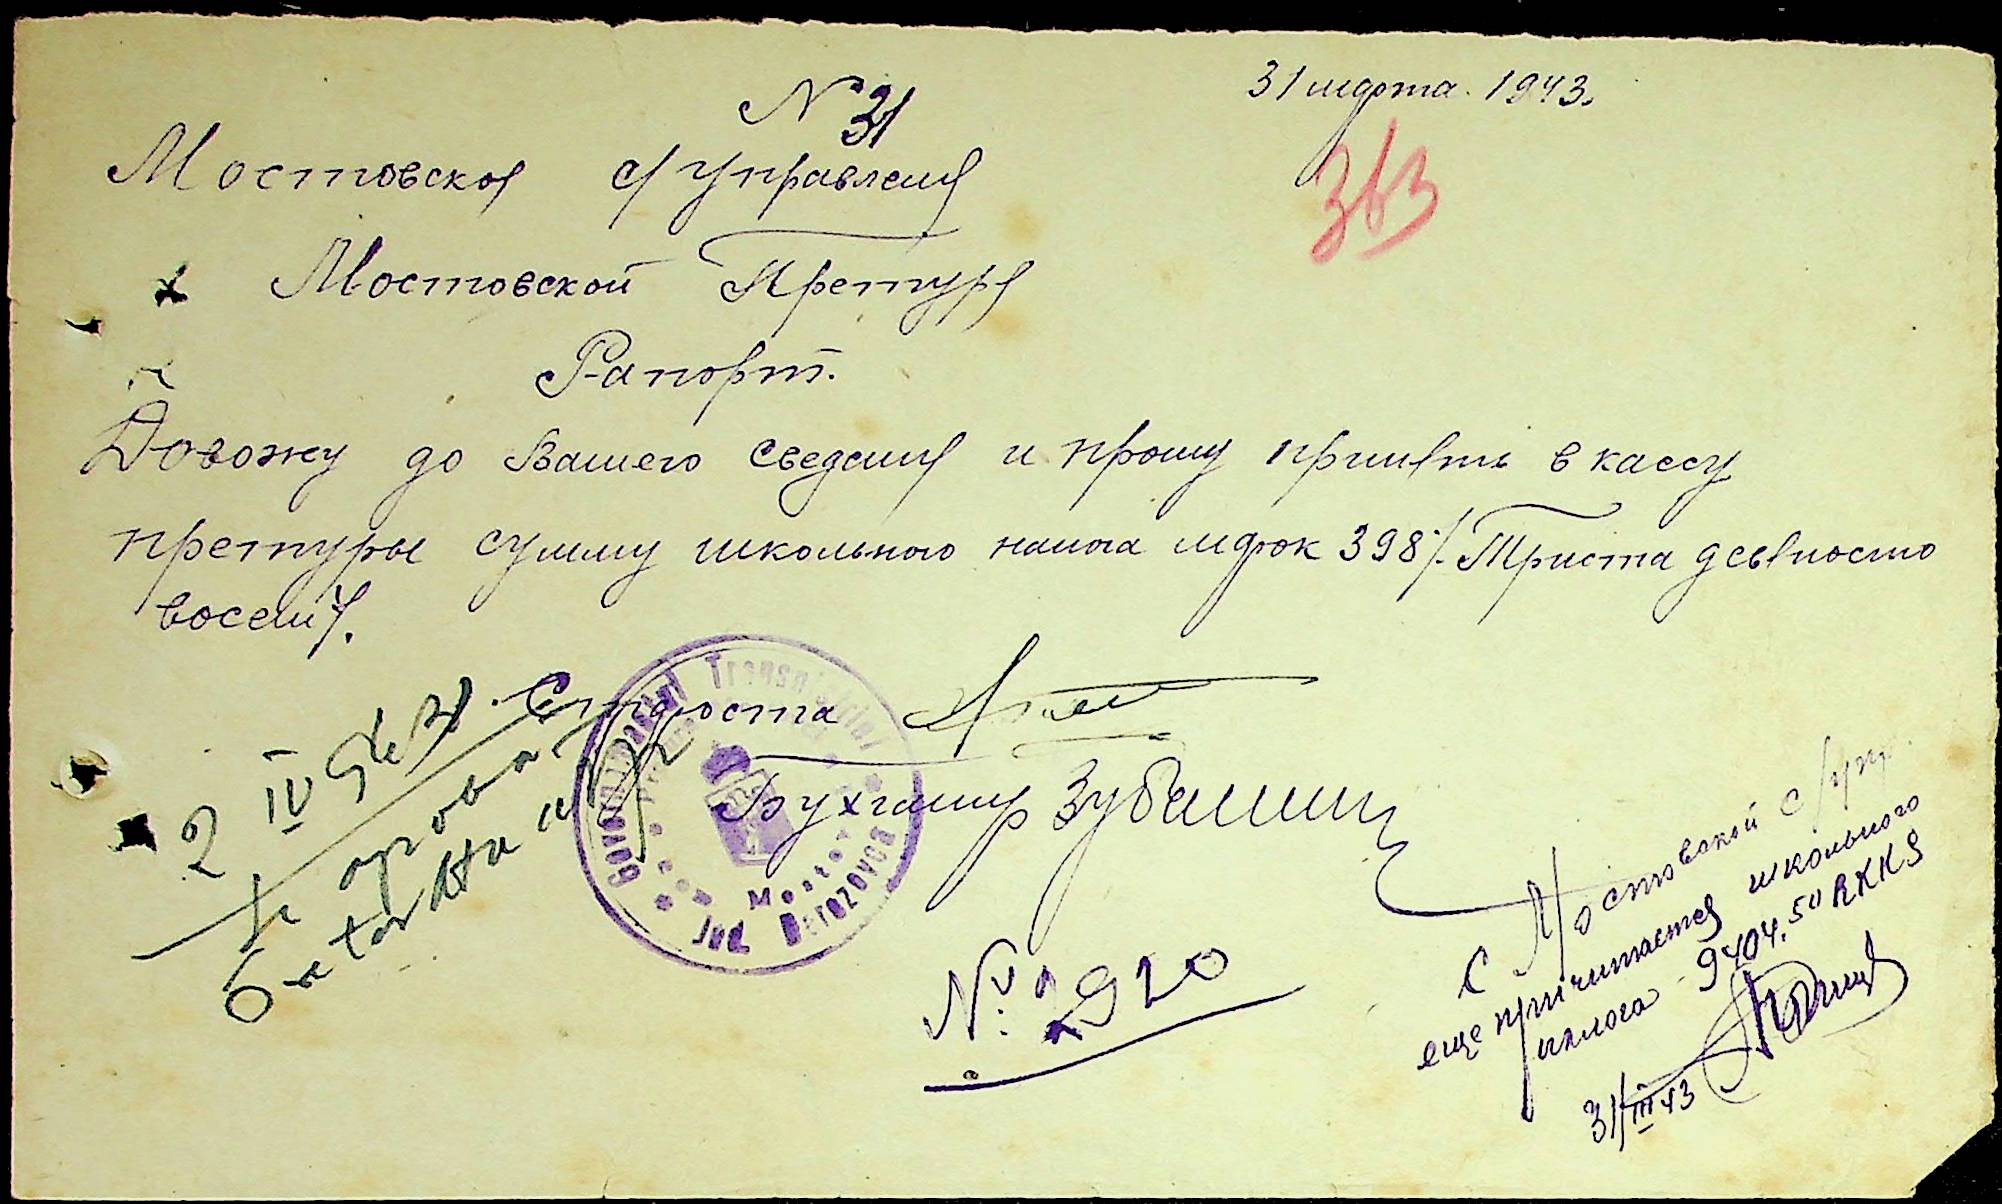 31 марта. 1943.
№ 31
363
Мостовская с/управления
Мостовской Претуре
Рапорт.
Довожу до Вашего сведения и прошу принять в кассу
претуры сумму школьного налога марок 398/. Триста девяносто
восемь/.
Староста
Бухгалтер
Guvernământul Transnistriei
Jud. Berezovca
№ 2920
2 IV
С Мостовской с/упр.
еще причитается школьного
налога - 9404.50 RKKS
31/III 43